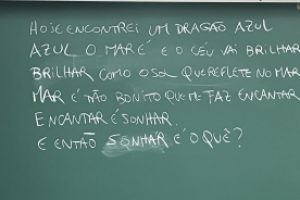 HOJE ENCONTREI UM DRAGÃO AZUL
AZUL O MAR É E O CÉU VAI BRILHAR
BRILHAR COMO O SOL QUE REFLETE NO MAR
MAR É TÃO BONITO QUE ME FAZ ENCANTAR
ENCANTAR É SONHAR
E ENTÃO SONHAR É O QUÊ?